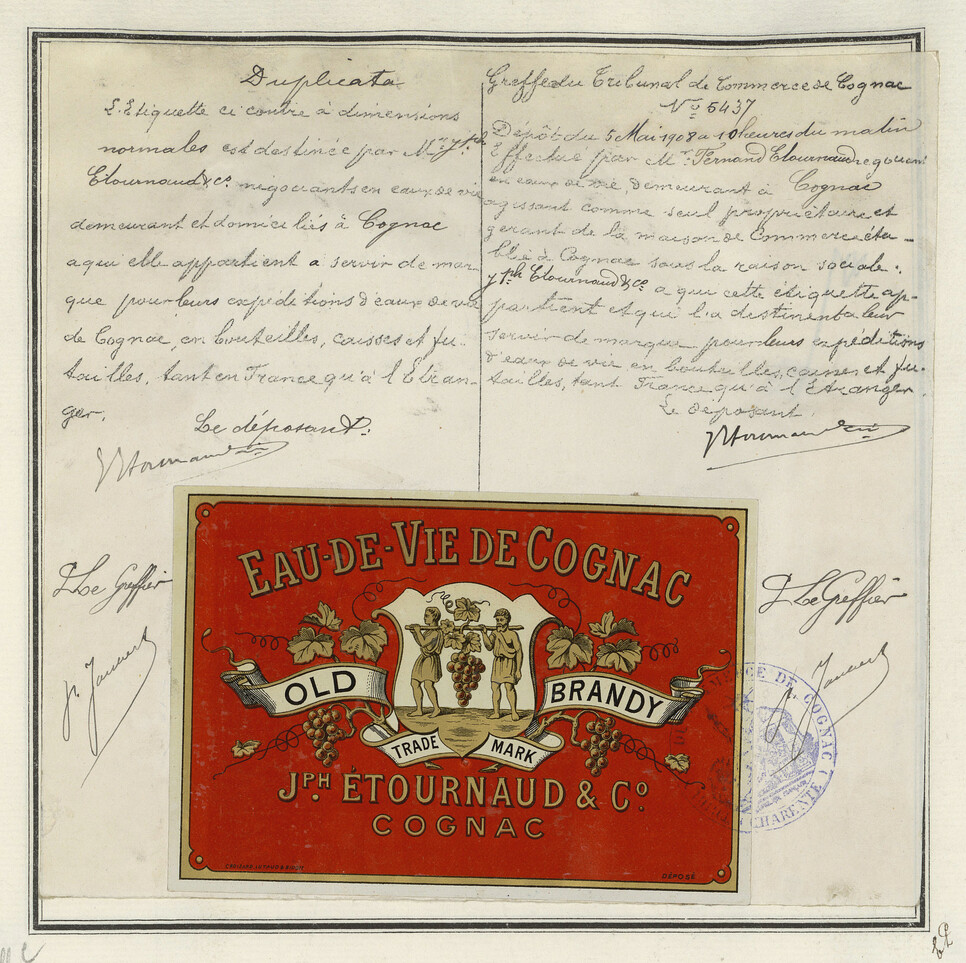 Duplicata
L'Etiquette ci contre à dimensions
normales est destinée par Mrs Jph
Etournaud & Co. négociants en eaux de vie
demeurant et domiciliés à Cognac
a qui elle appartient a servir de mar-
que pour leurs expéditions d'eaux de vie
de Cognac, en bouteilles, caisses et fu-
tailles, tant en France qu'à l'Etran-
ger.
Le déposant.
JEtournaud & Cie
P Le Greffier
Greffe du Tribunal de Commerce de Cognac
No 5437
Dépôt du 5 Mai 1908 a 10 heures du matin
Effectué par Mr. Fernand Etournaud negociant
en eaux de vie, demeurant à Cognac
agissant comme seul propriétaire et
gerant de la maison de Commerce éta-
blie à Cognac sous la raison sociale:
Jph Etournaud & Co. a qui cette étiquette ap-
partient et qui l'a destinent a leur
servir de marque pour leurs expéditions
d'eaux de vie en bouteilles, caisses et fu-
tailles, tant France qu'à l'Etranger.
Le deposant.
JEtournaud & Cie
P Le Greffier
EAU-DE-VIE DE COGNAC
OLD BRANDY
TRADE MARK
JPH ÉTOURNAUD & CO
COGNAC
DÉPOSÉ
DE COGNAC
CHARENTE